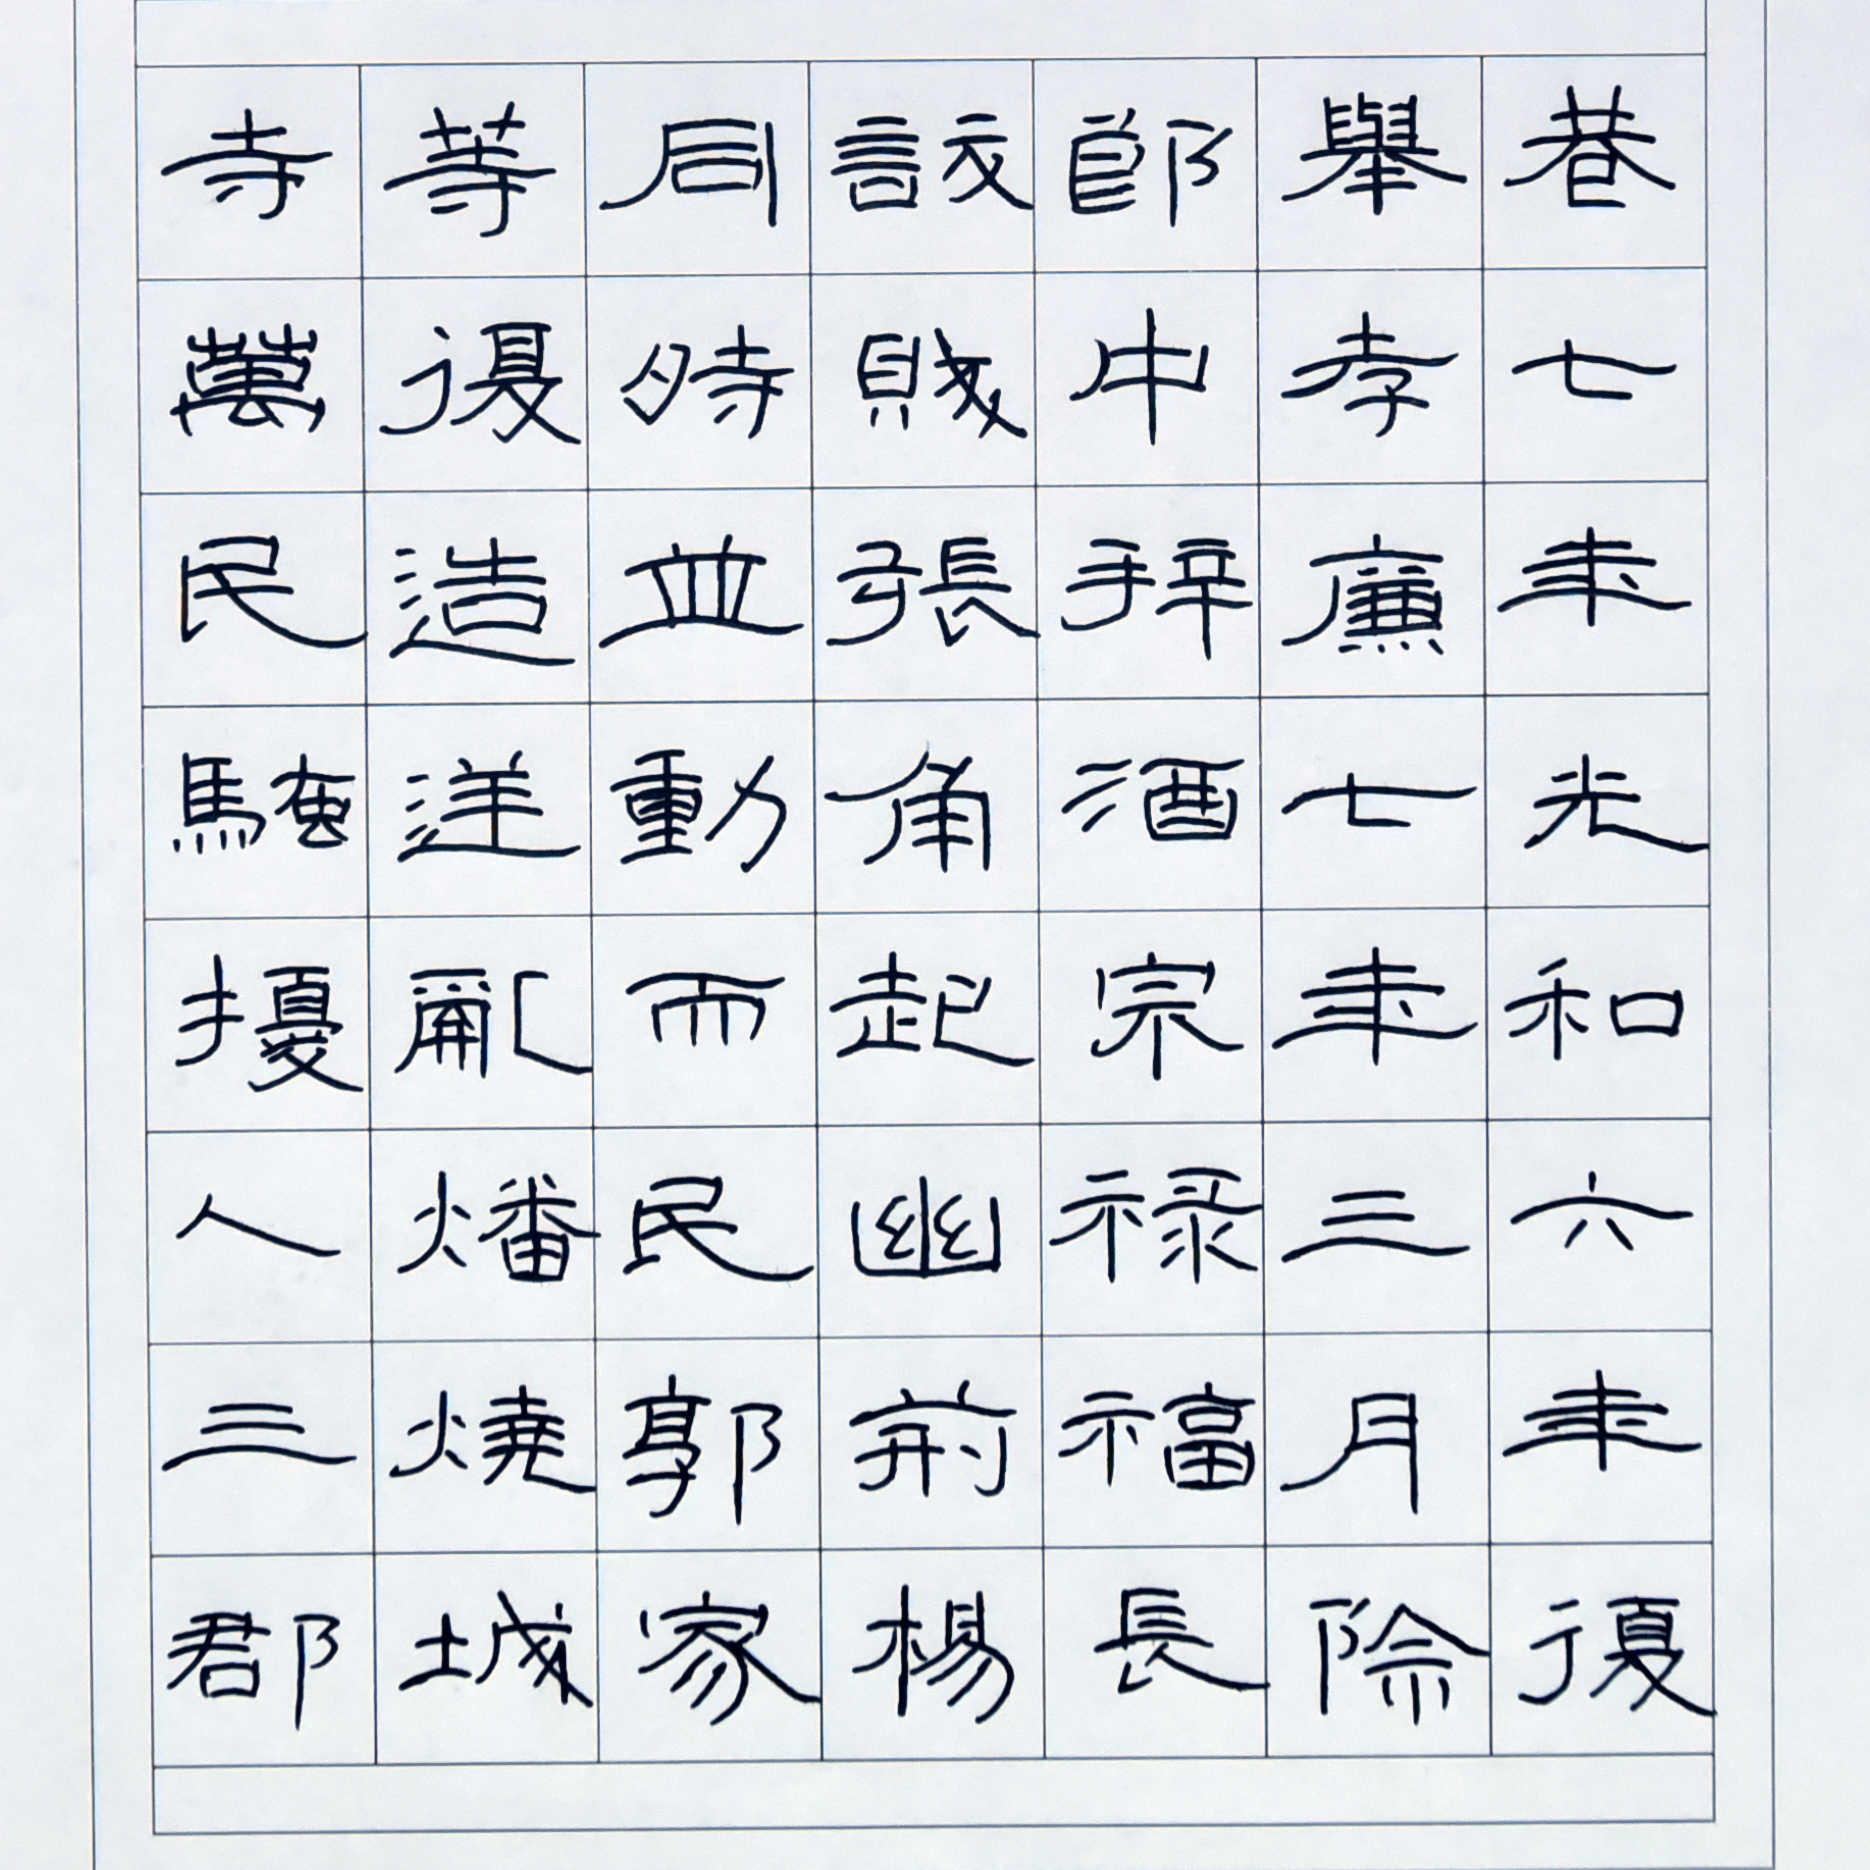 巷七年光和六年復
舉孝廉七年三月除
郎中拜酒泉祿福長
訞賊張角起幽冀楊
同時並動而民郭家
等復造逆亂燔燒城
寺萬民騷擾人三郡